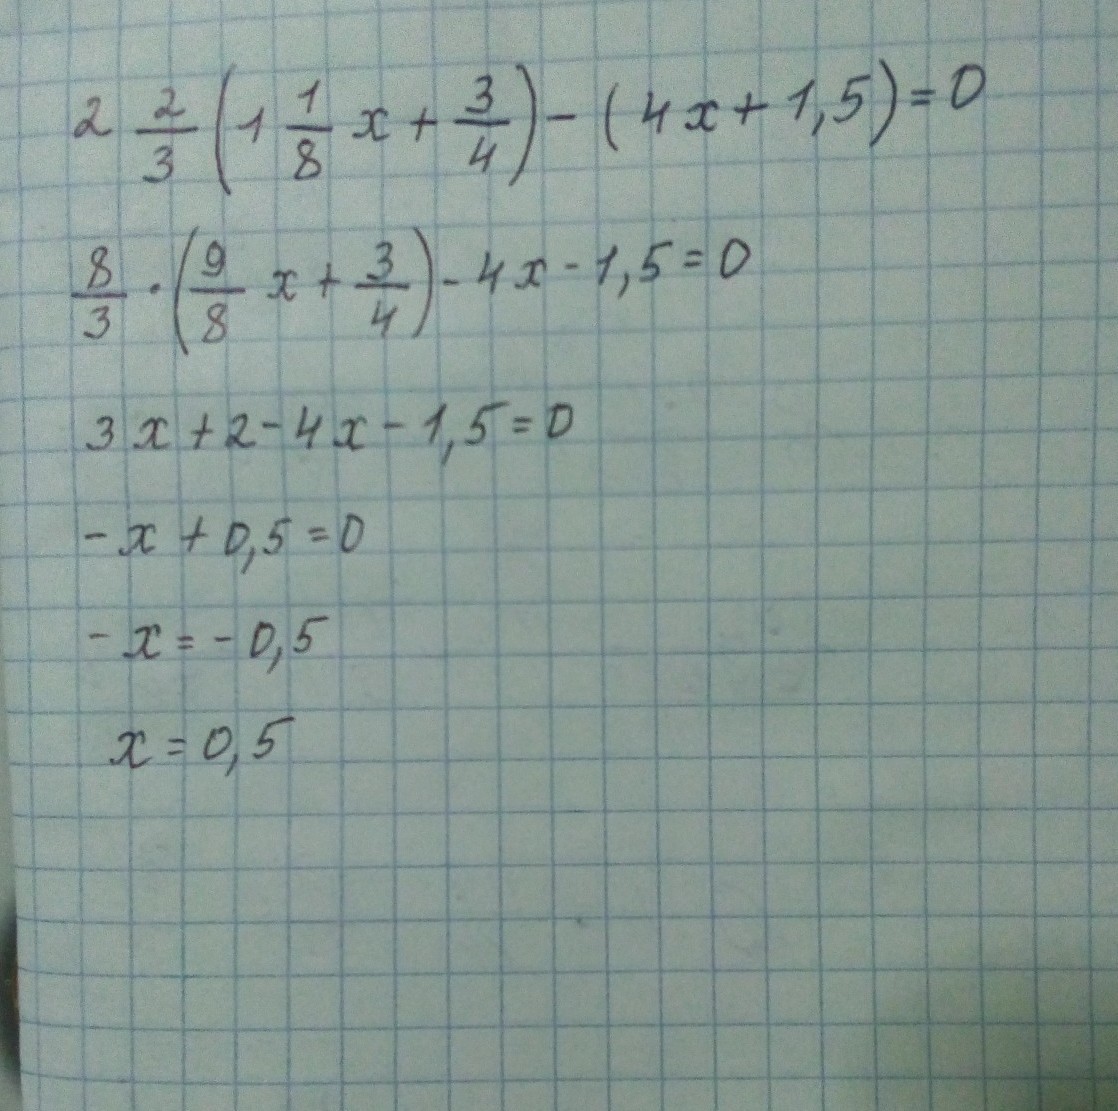 2 2/3 (1 1/8 x + 3/4) - (4x + 1,5) = 0
8/3 · (9/8 x + 3/4) - 4x - 1,5 = 0
3x + 2 - 4x - 1,5 = 0
- x + 0,5 = 0
- x = - 0,5
x = 0,5